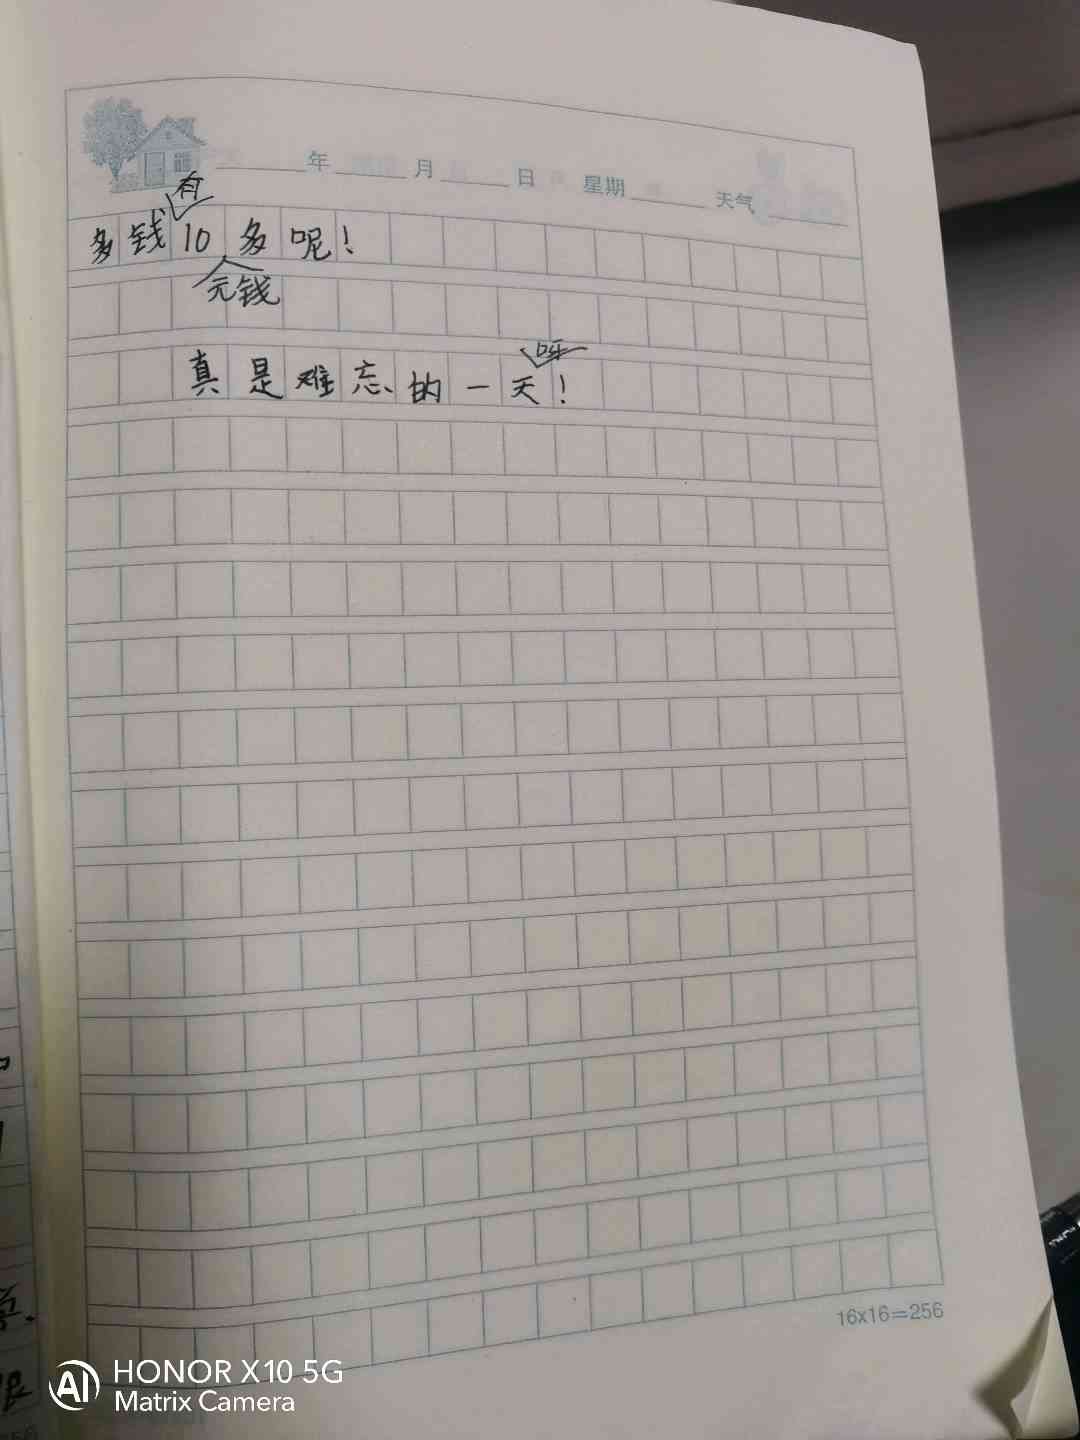 年 月 日 星期 天气
有
多钱10多呢！
元钱
呀
真是难忘的一天！
16x16=256
HONOR X10 5G
Matrix Camera